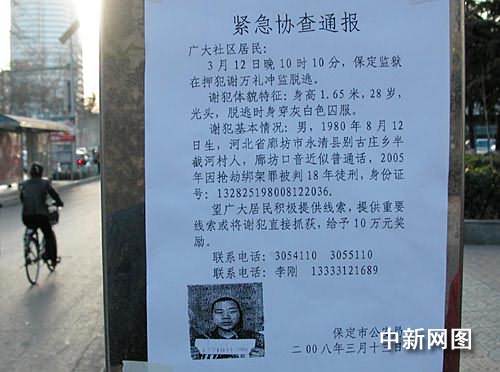 紧急协查通报
广大社区居民：
3月12日晚10时10分，保定监狱
在押犯谢万礼冲监脱逃。
谢犯体貌特征：身高1.65米，28岁，
光头，脱逃时身穿灰白色囚服。
谢犯基本情况：男，1980年8月12
日生，河北省廊坊市永清县别古庄乡半
截河村人，廊坊口音近似普通话，2005
年因抢劫绑架罪被判18年徒刑，身份证
号：132825198008122036.
望广大居民积极提供线索，提供重要
线索或将谢犯直接抓获，给予10万元奖
励。
联系电话：3054110 3055110
联系电话：李刚 13333121689
保定市公
二00八年三月十三日
中新网图